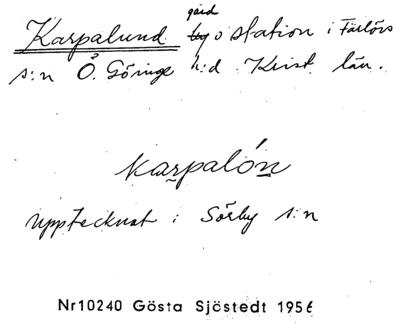 gård
Karpalund by o station i Färlövs
s:n Ö. Göinge h:d. Krist. län.
karpalón
Upptecknat i Sörby s:n
Nr10240 Gösta Sjöstedt 1956